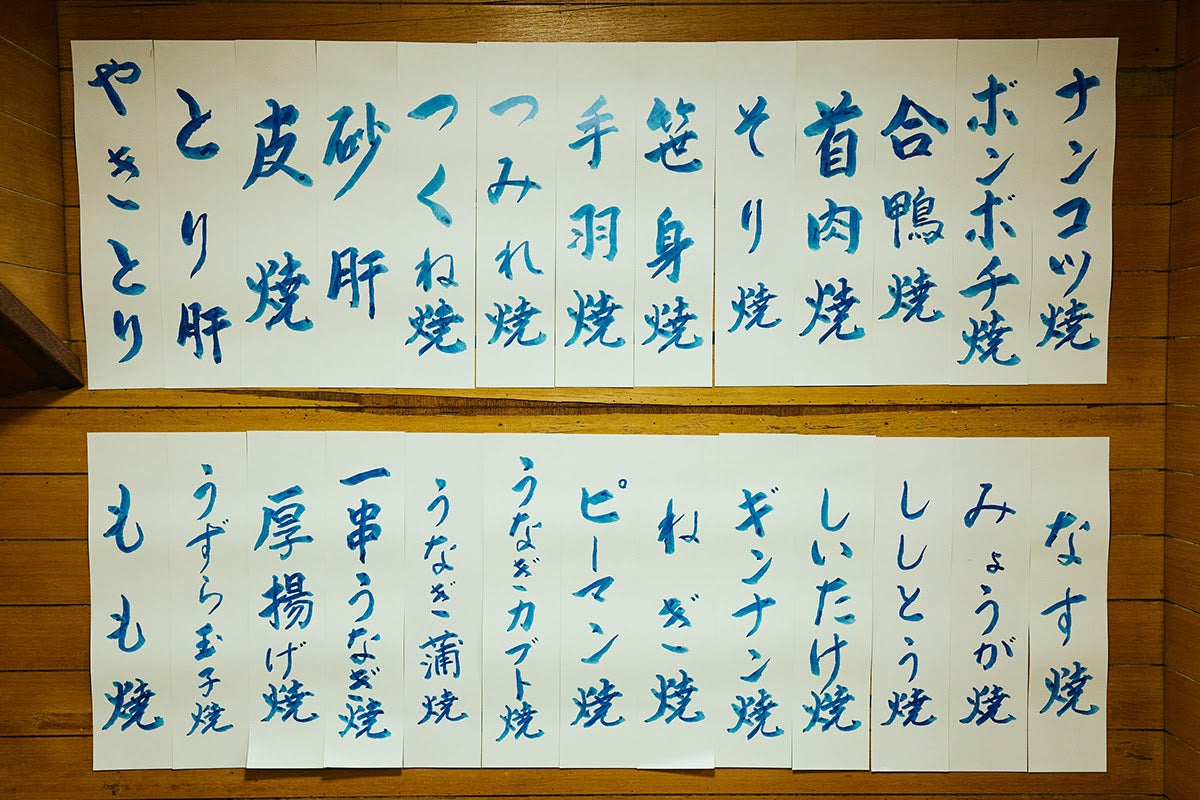 ナンコツ焼
ボンボチ焼
合鴨焼
首肉焼
そり焼
笹身焼
手羽焼
つみれ焼
つくね焼
砂肝
皮焼
とり肝
やきとり
なす焼
みょうが焼
ししとう焼
しいたけ焼
ギンナン焼
ねぎ焼
ピーマン焼
うなぎカブト焼
うなぎ蒲焼
一串うなぎ焼
厚揚げ焼
うずら玉子焼
もも焼